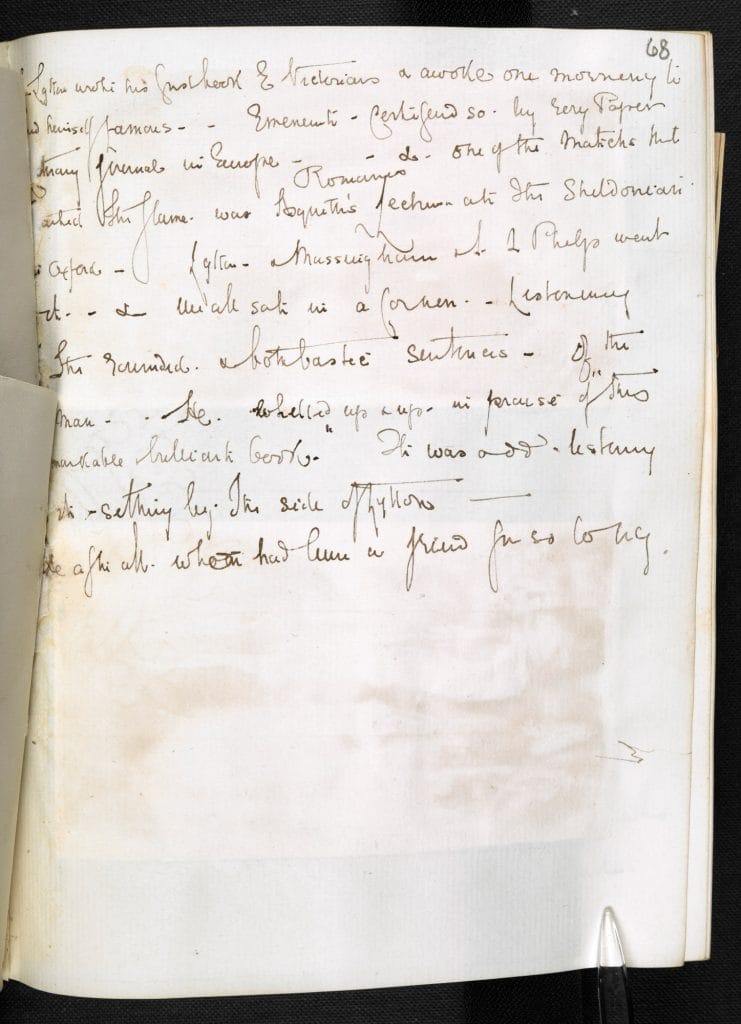 68
Lytton wrote his first book E Victorians & awoke one morneng to
himself famous - - Emenent - Certifiend so - by Eery Paper
many Jirunal in Europe - - &. one of the Matichs that
Romanes
the flame. was Asqueth's lecture at the Sheldonean
Oxford - Lytton - & Massingham & I Phelps went
- - & we all sat in a Corner. - Listenening
the rounded. & bothbastic sentences - of the
man - . He. whelled up & up - in praise of "this
markable brilliant book." It was odd - listening
- setting by the side of Lytton —
after all. whom had been a friend for so long.